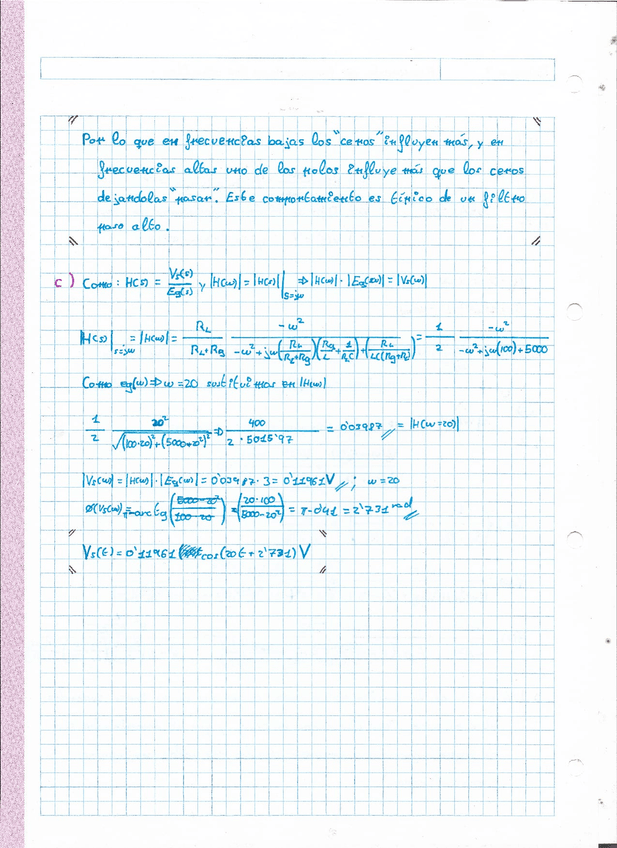 Por lo que en frecuencias bajas los "ceros" influyen más, y en
frecuencias altas uno de los polos influye más que los ceros
dejandolas "pasar". Este comportamiento es típico de un filtro
paso alto.
c) Como: H(s) = Vs(s)/Eg(s) y |H(w)| = |H(s)||s=jw => |H(w)| · |Eg(w)| = |Vs(w)|
|H(s)|s=jw = |H(w)| = RL/(RL+Rg) · -w²/(-w²+jw(RL/(RL+Rg))(Rg/L + 1/(RLC)) + (RL/(LC(Rg+RL)))) = 1/2 · -w²/(-w²+jw(100)+5000)
Como eg(w) => w=20 sustituimos en |H(w)|
1/2 · 20²/√((100·20)²+(5000-20²)²) => 400/(2·5015'97) = 0'03987 = |H(w=20)|
|Vs(w)| = |H(w)|·|Eg(w)| = 0'03987·3 = 0'11961V ; w=20
Ø(Vs(w)) = π-arctg (20·100/(5000-20²)) = π-0'41 = 2'731 rad
Vs(t) = 0'11961 cos(20t+2'731) V